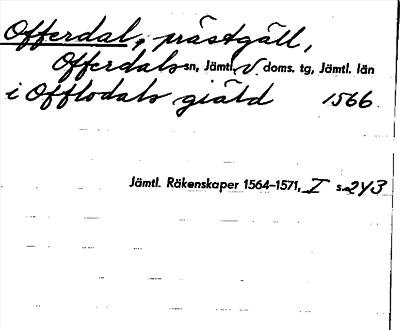 Offerdal, prästgäll,
Offerdals sn, Jämtl. V doms. tg, Jämtl. län
i Offlodals giäld 1566
Jämtl. Räkenskaper 1564–1571, I s. 243